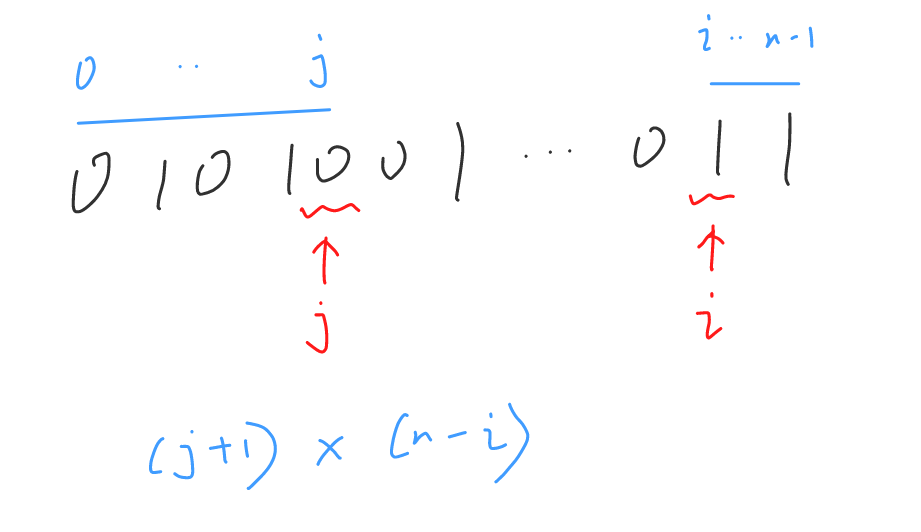 0 ·· j i ·· n-1
0 1 0 1 0 0 1 ··· 0 1 1
j i
(j+1) × (n-i)